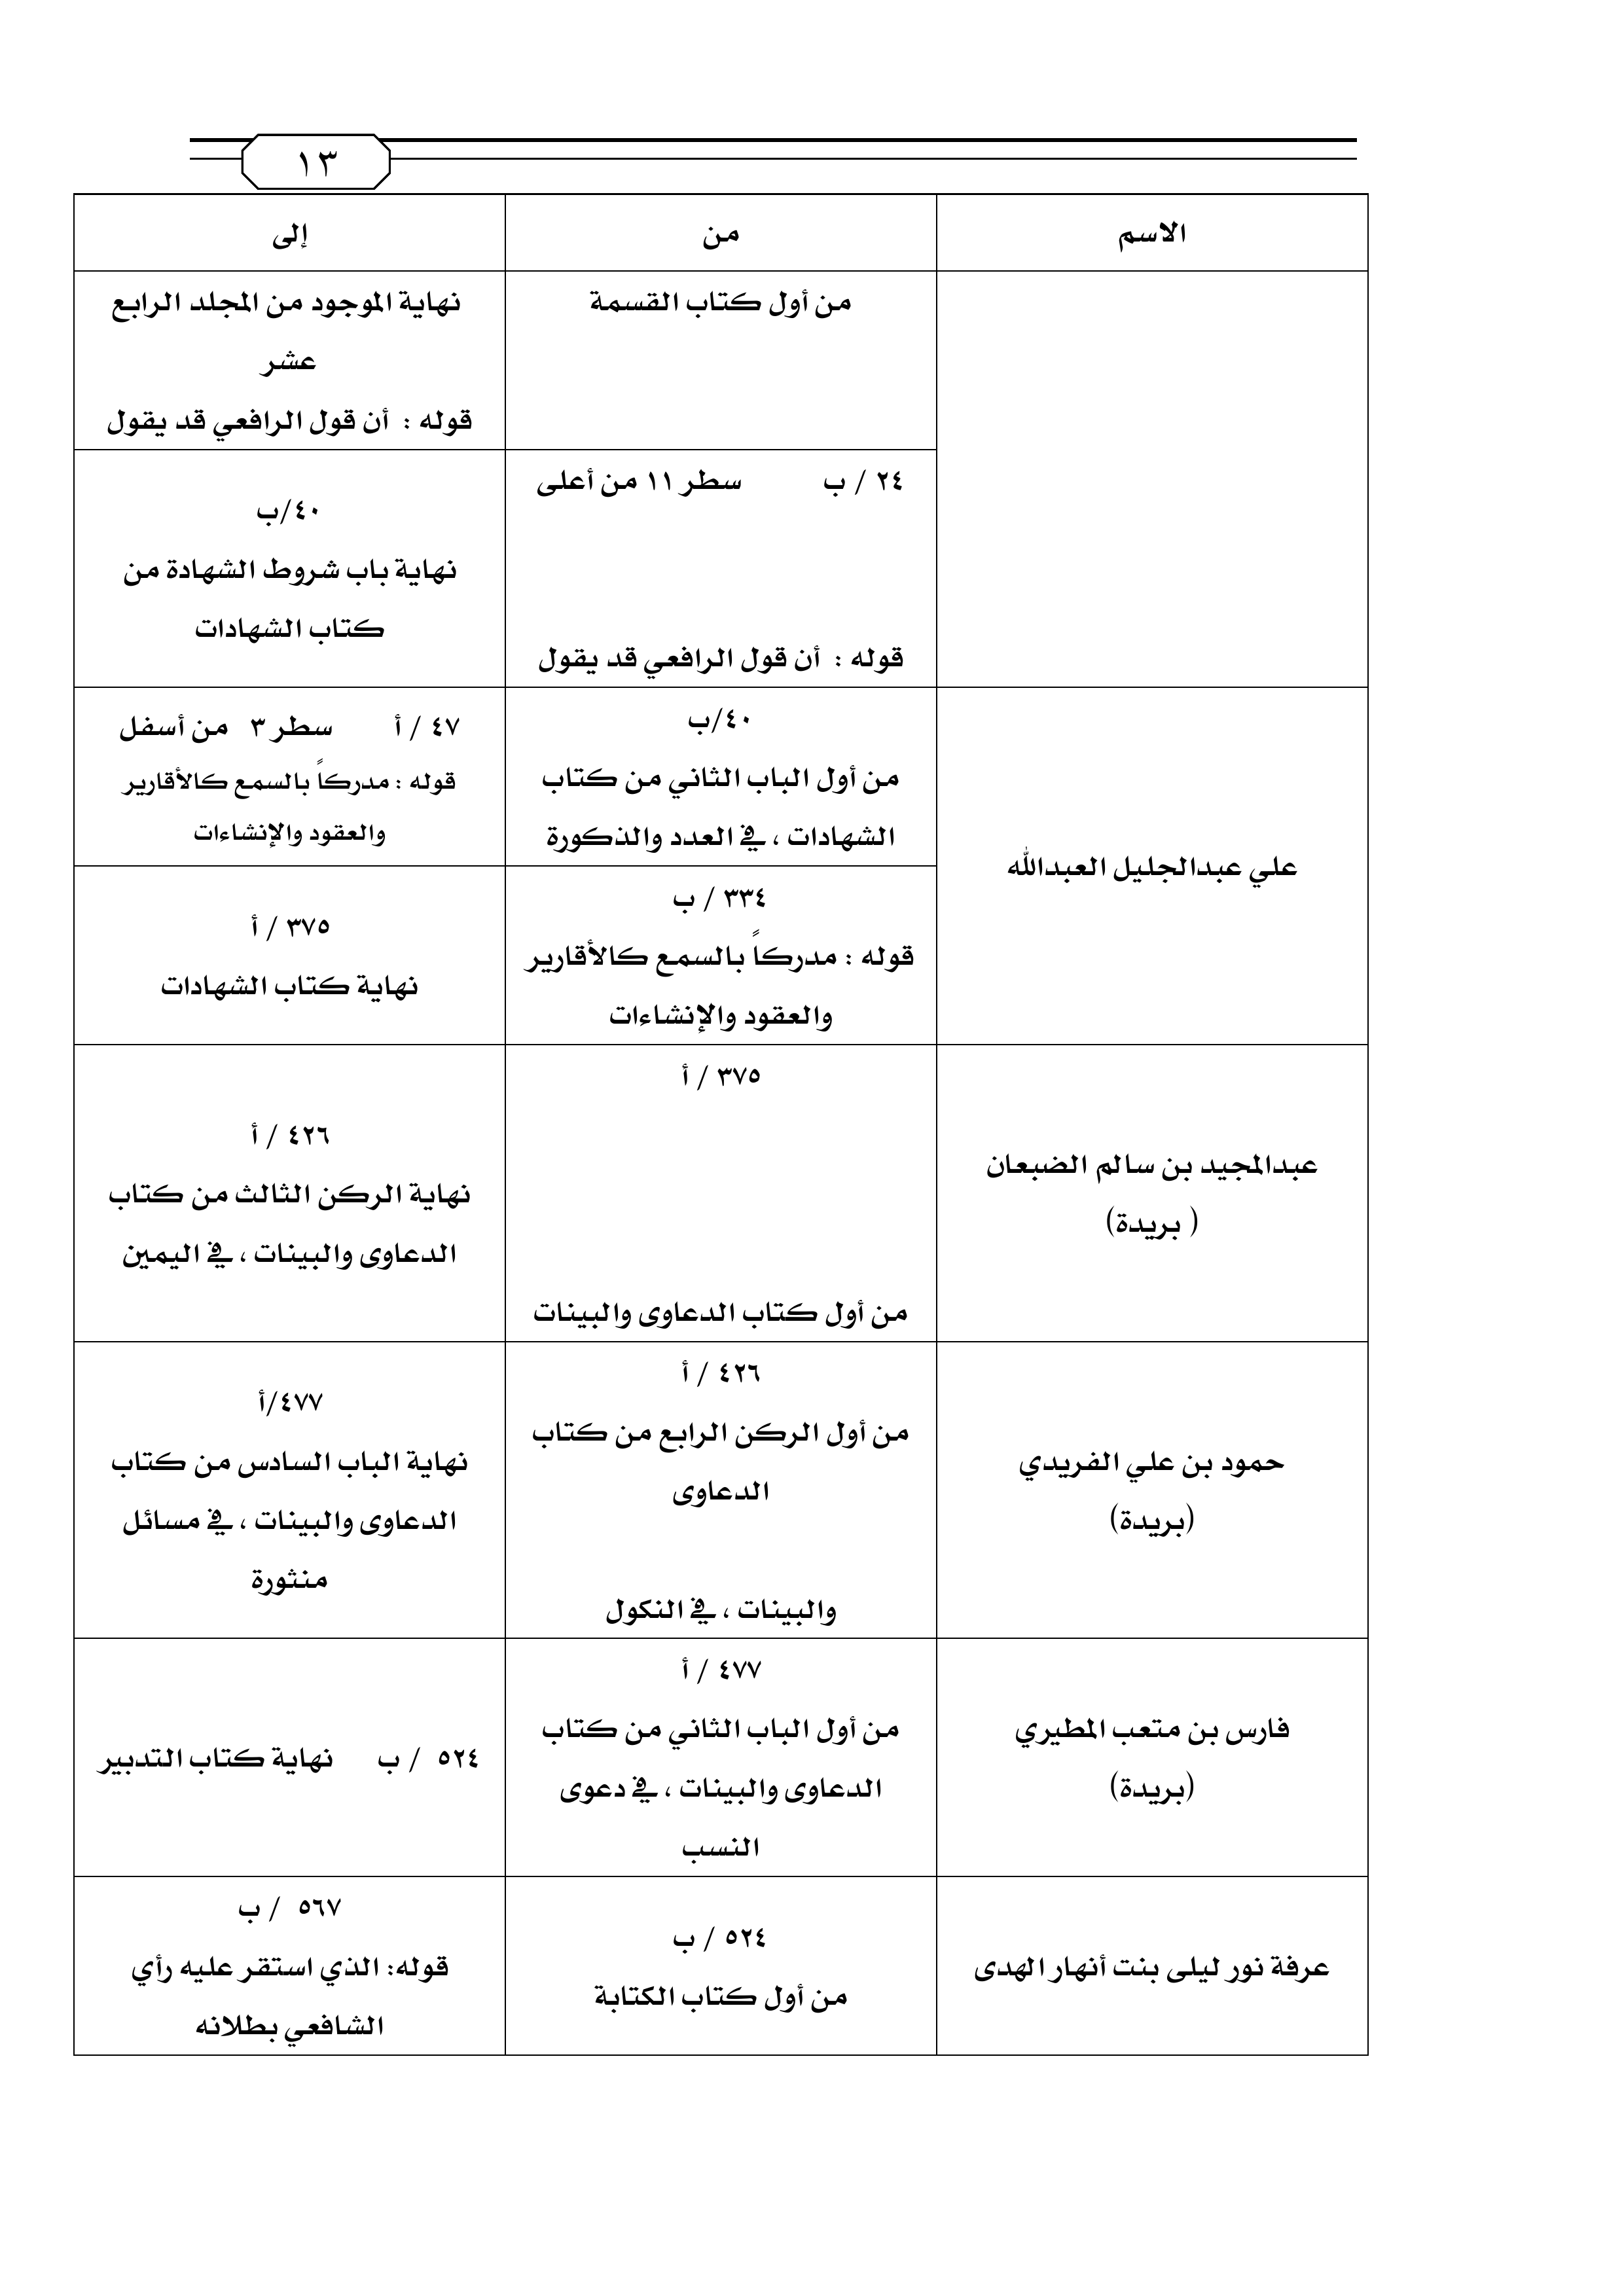 ١٣
الاسم
من
إلى
من أول كتاب القسمة
نهاية الموجود من المجلد الرابع
عشر
قوله : أن قول الرافعي قد يقول
٢٤ / ب سطر ١١ من أعلى
قوله : أن قول الرافعي قد يقول
٤٠/ب
نهاية باب شروط الشهادة من
كتاب الشهادات
علي عبدالجليل العبدالله
٤٠/ب
من أول الباب الثاني من كتاب
الشهادات ، في العدد والذكورة
٤٧ / أ سطر ٣ من أسفل
قوله : مدركاً بالسمع كالأقارير
والعقود والإنشاءات
٣٣٤ / ب
قوله : مدركاً بالسمع كالأقارير
والعقود والإنشاءات
٣٧٥ / أ
نهاية كتاب الشهادات
عبدالمجيد بن سالم الضبعان
( بريدة)
٣٧٥ / أ
من أول كتاب الدعاوى والبينات
٤٢٦ / أ
نهاية الركن الثالث من كتاب
الدعاوى والبينات ، في اليمين
حمود بن علي الفريدي
(بريدة)
٤٢٦ / أ
من أول الركن الرابع من كتاب
الدعاوى
والبينات ، في النكول
٤٧٧/أ
نهاية الباب السادس من كتاب
الدعاوى والبينات ، في مسائل
منثورة
فارس بن متعب المطيري
(بريدة)
٤٧٧ / أ
من أول الباب الثاني من كتاب
الدعاوى والبينات ، في دعوى
النسب
٥٢٤ / ب نهاية كتاب التدبير
عرفة نور ليلى بنت أنهار الهدى
٥٢٤ / ب
من أول كتاب الكتابة
٥٦٧ / ب
قوله: الذي استقر عليه رأي
الشافعي بطلانه